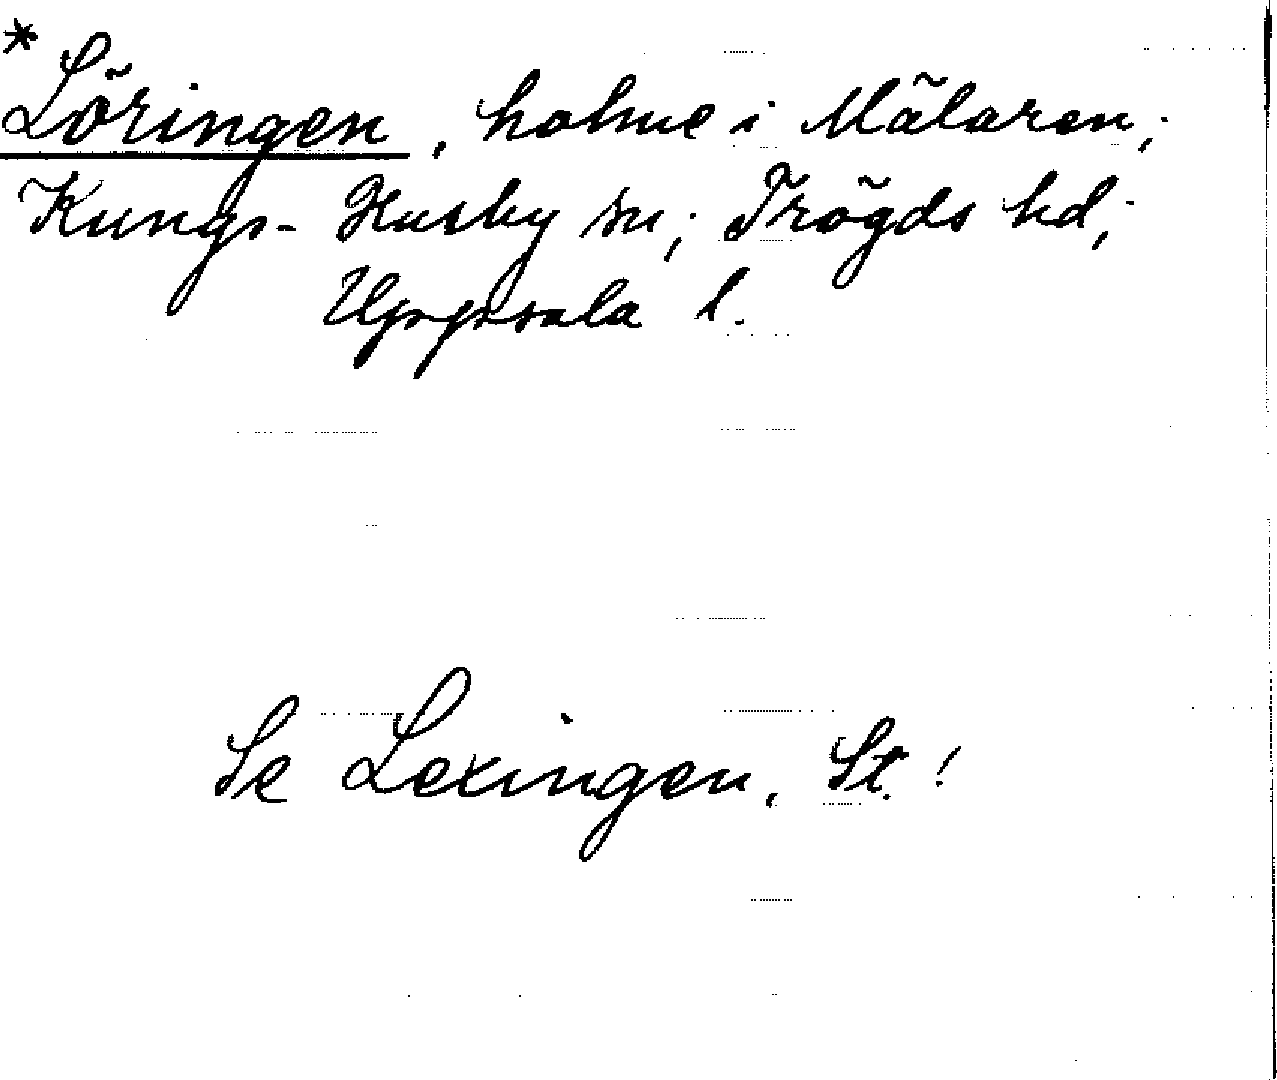 *
Löringen, holme i Mälaren;
Kungs-Husby sn; Trögds hd;
Uppsala l.
Se Lexingen, St!